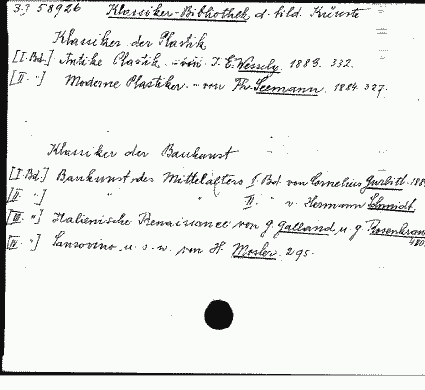 3.3 58926 Klassiker-Bibliothek d. bild. Künste
Klassiker der Plastik
[I. Bd.] Antike Plastik. von I. E. Wessely. 1883. 332.
[II. "] Moderne Plastiker. von Th. Seemann. 1884. 327.
Klassiker der Baukunst
[I. Bd.] Baukunst des Mittelalters I. Bd. von Cornelius Gurlitt.
[II. "] " " " II. " v. Hermann Schmidt.
[III. "] Italienische Renaissance von G. Galland u. G. Rosenkranz
480.
[IV. "] Sansovino u. s. w. von H. Mosler. 295.